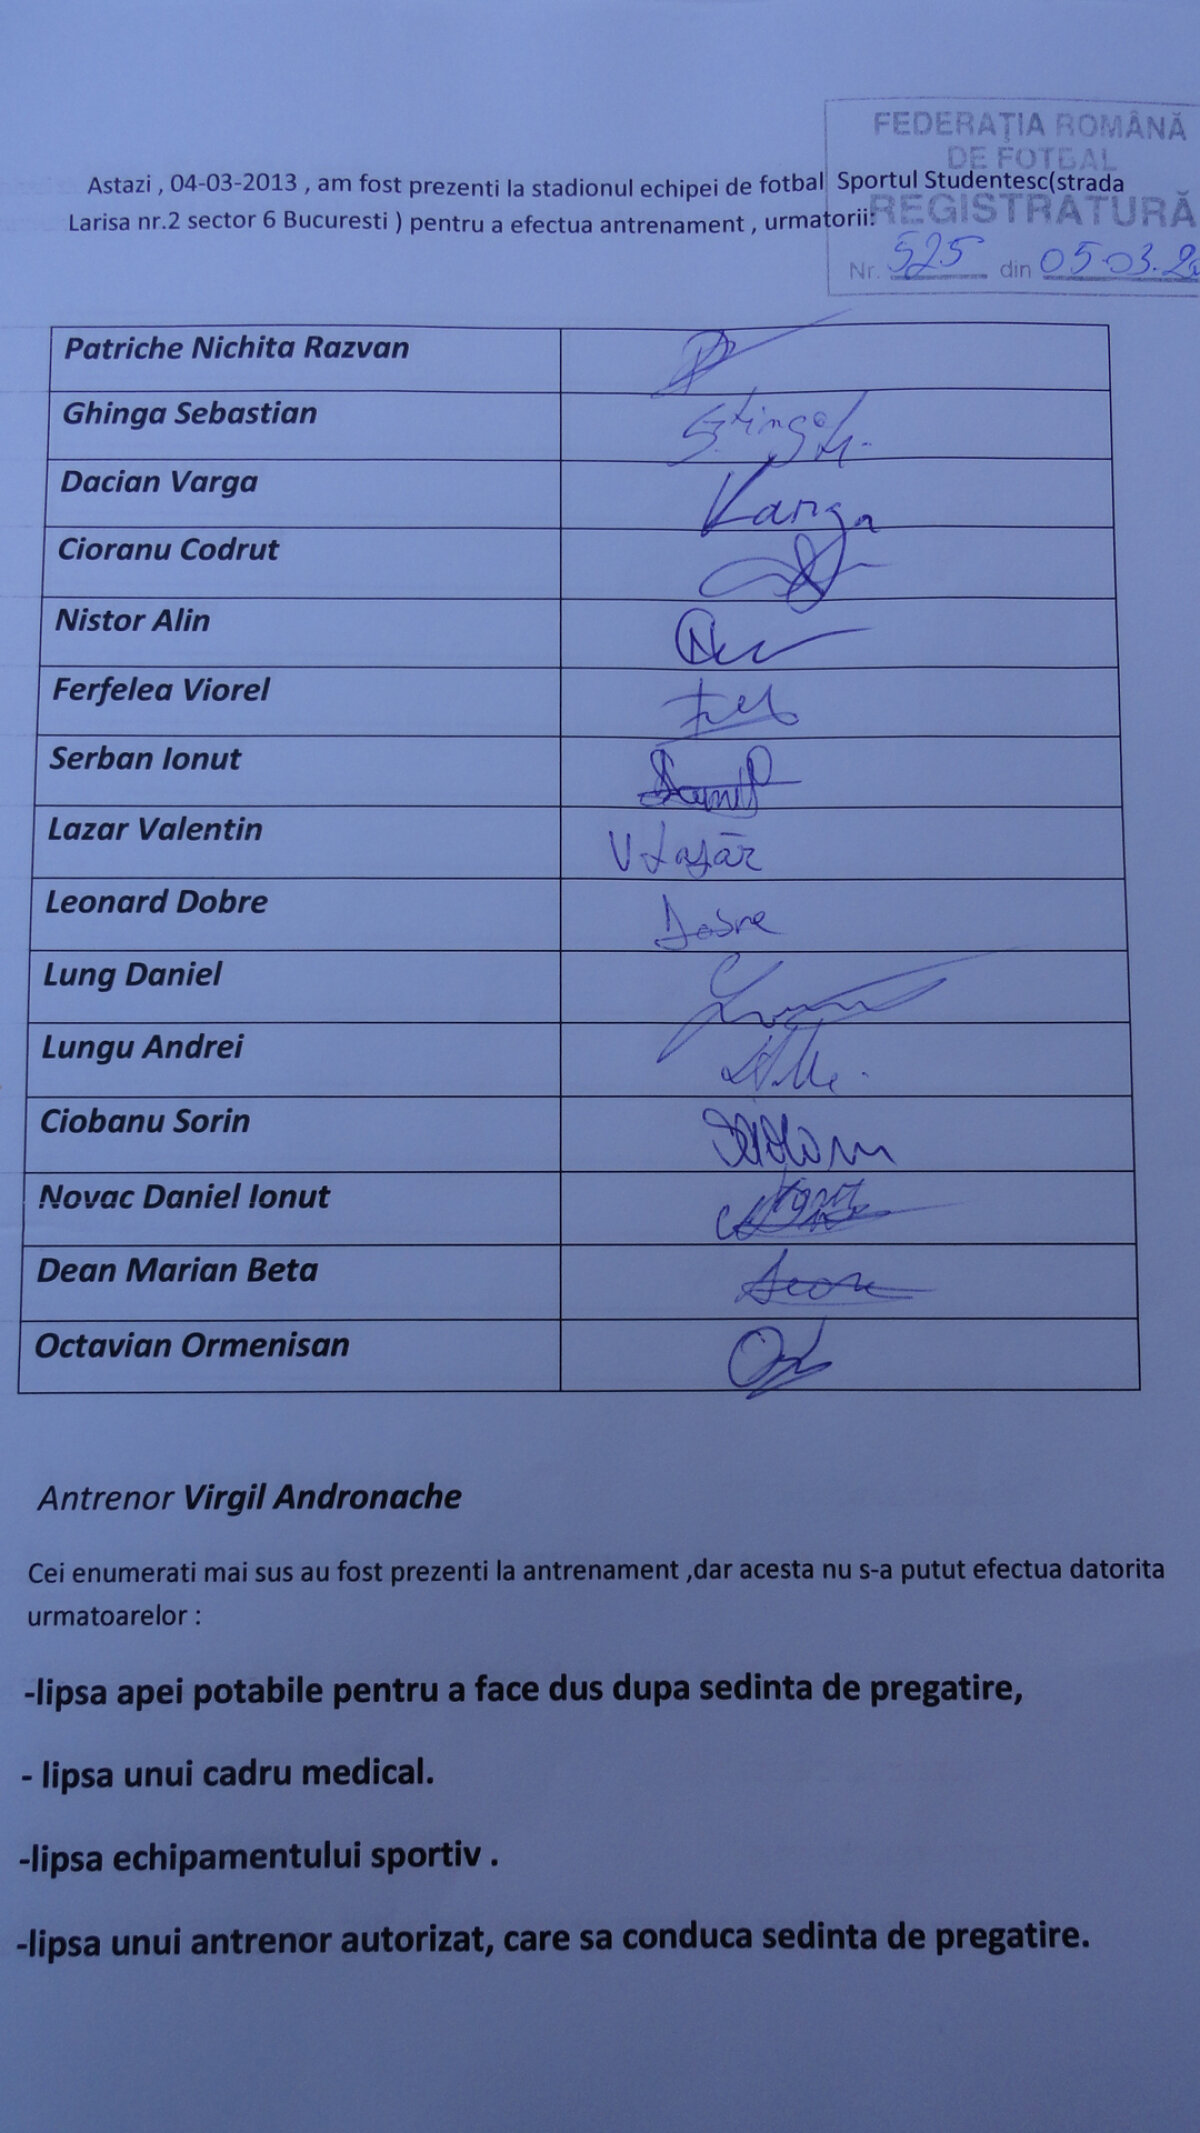 FEDERAŢIA ROMÂNĂ
DE FOTBAL
REGISTRATURĂ
Nr. 525 din 05-03.
Astazi , 04-03-2013 , am fost prezenti la stadionul echipei de fotbal Sportul Studentesc(strada
Larisa nr.2 sector 6 Bucuresti ) pentru a efectua antrenament , urmatorii:
Patriche Nichita Razvan
Ghinga Sebastian
Dacian Varga Varga
Cioranu Codrut
Nistor Alin
Ferfelea Viorel
Serban Ionut
Lazar Valentin V Lazăr
Leonard Dobre Dobre
Lung Daniel
Lungu Andrei
Ciobanu Sorin
Novac Daniel Ionut
Dean Marian Beta
Octavian Ormenisan
Antrenor Virgil Andronache
Cei enumerati mai sus au fost prezenti la antrenament ,dar acesta nu s-a putut efectua datorita
urmatoarelor :
-lipsa apei potabile pentru a face dus dupa sedinta de pregatire,
- lipsa unui cadru medical.
-lipsa echipamentului sportiv .
-lipsa unui antrenor autorizat, care sa conduca sedinta de pregatire.